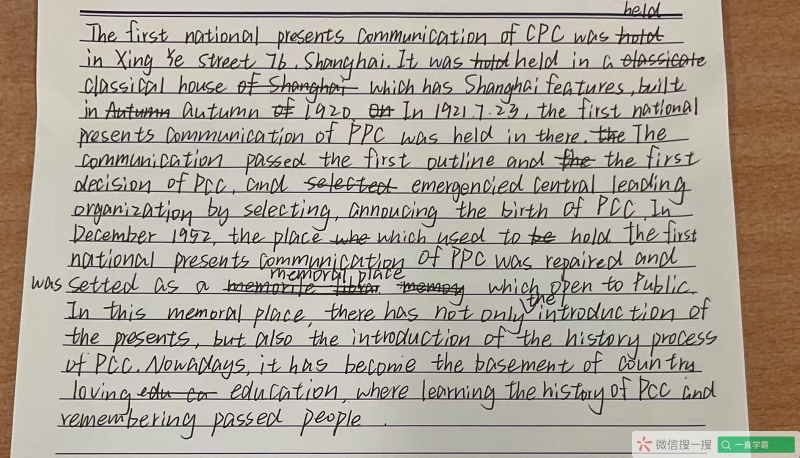 held
The first national presents communication of CPC was hold
in Xing Ye street 76, Shanghai. It was hold held in a classicate
classical house of Shanghai which has Shanghai features, built
in Autumn autumn of 1920. On In 1921.7.23, the first national
presents communication of PPC was held in there. the The
communication passed the first outline and the the first
decision of PCC, and selected emergencied central leading
organization by selecting, annoucing the birth of PCC. In
December 1952, the place whe which used to be hold the first
national presents communication of PPC was repaired and
memoral place
was setted as a memorile librar memory which open to Public.
the
In this memoral place, there has not only introduction of
the presents, but also the introduction of the history process
of PCC. Nowadays, it has become the basement of country
loving edu ca education, where learning the history of PCC and
remembering passed people.
微信搜一搜 一直学霸